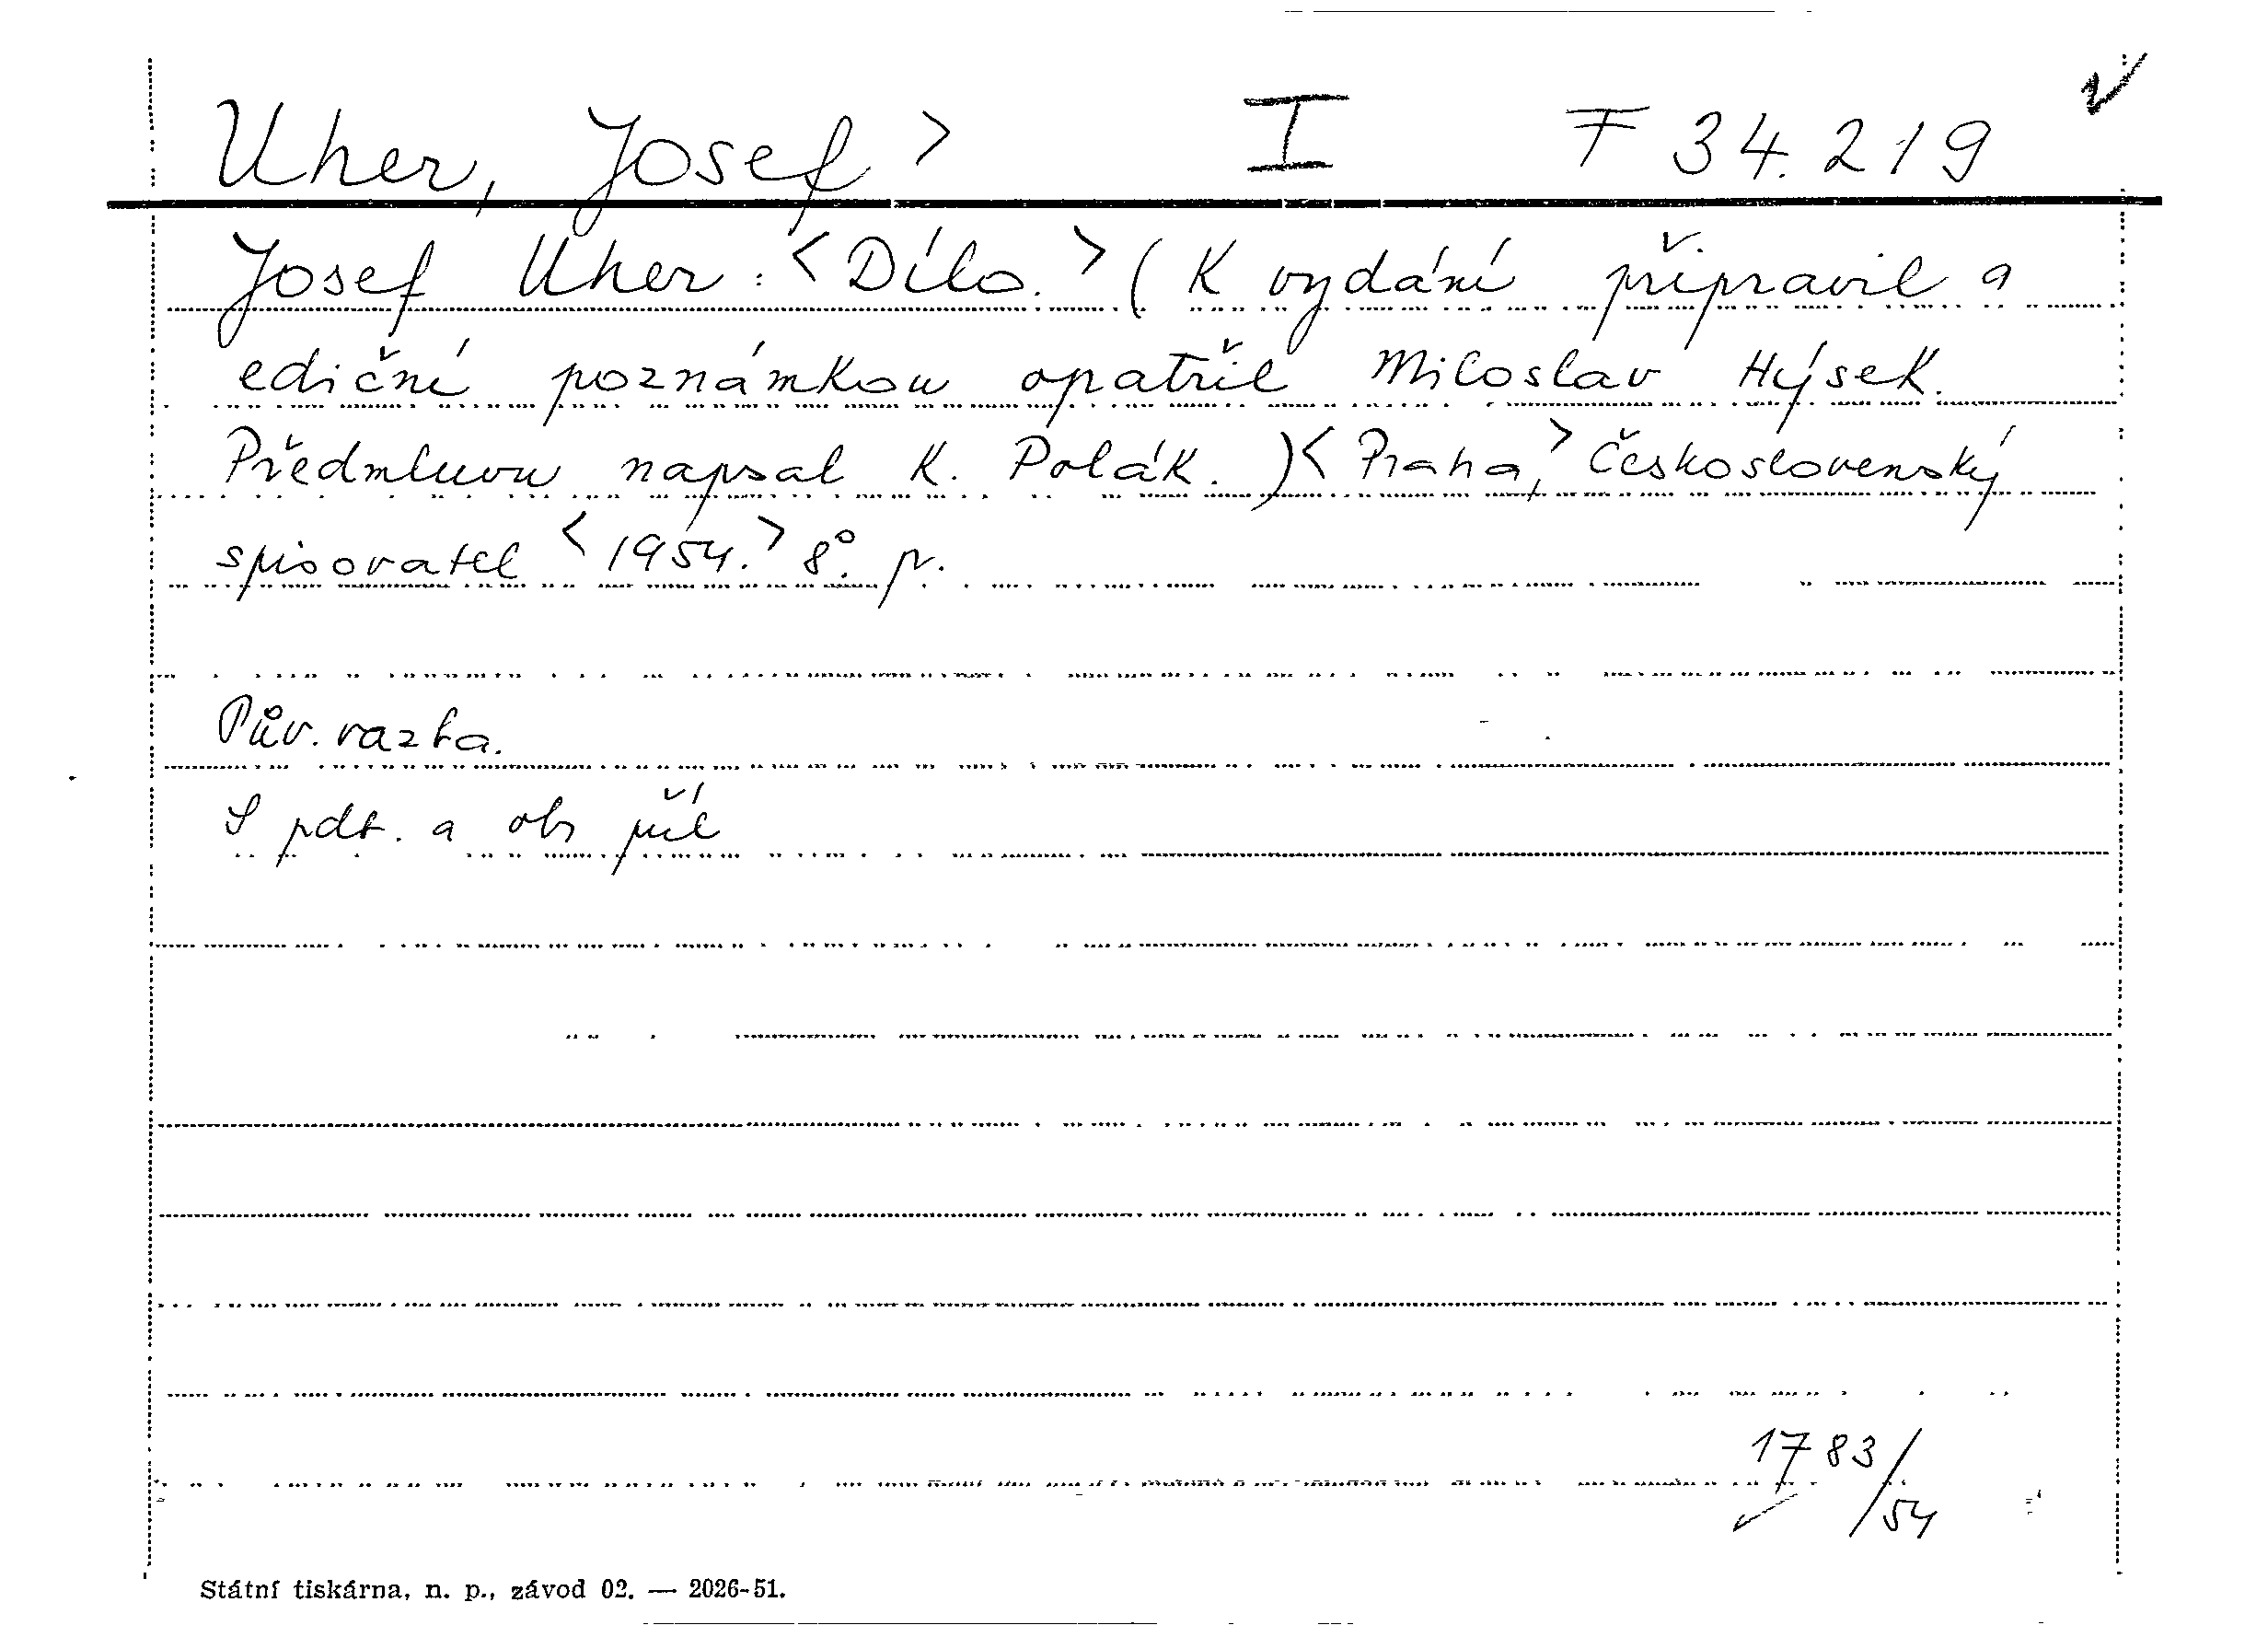 Uher, Josef > I F 34.219
Josef Uher: <Dílo.> (K vydání připravil a
ediční poznámkou opatřil Miloslav Hýsek.
Předmluvu napsal K. Polák.) <Praha,> Československý
spisovatel <1954.> 8°. p.
Pův. vazba.
S pdt. a obr příl
1783/54
Státní tiskárna, n. p., závod 02. — 2026-51.